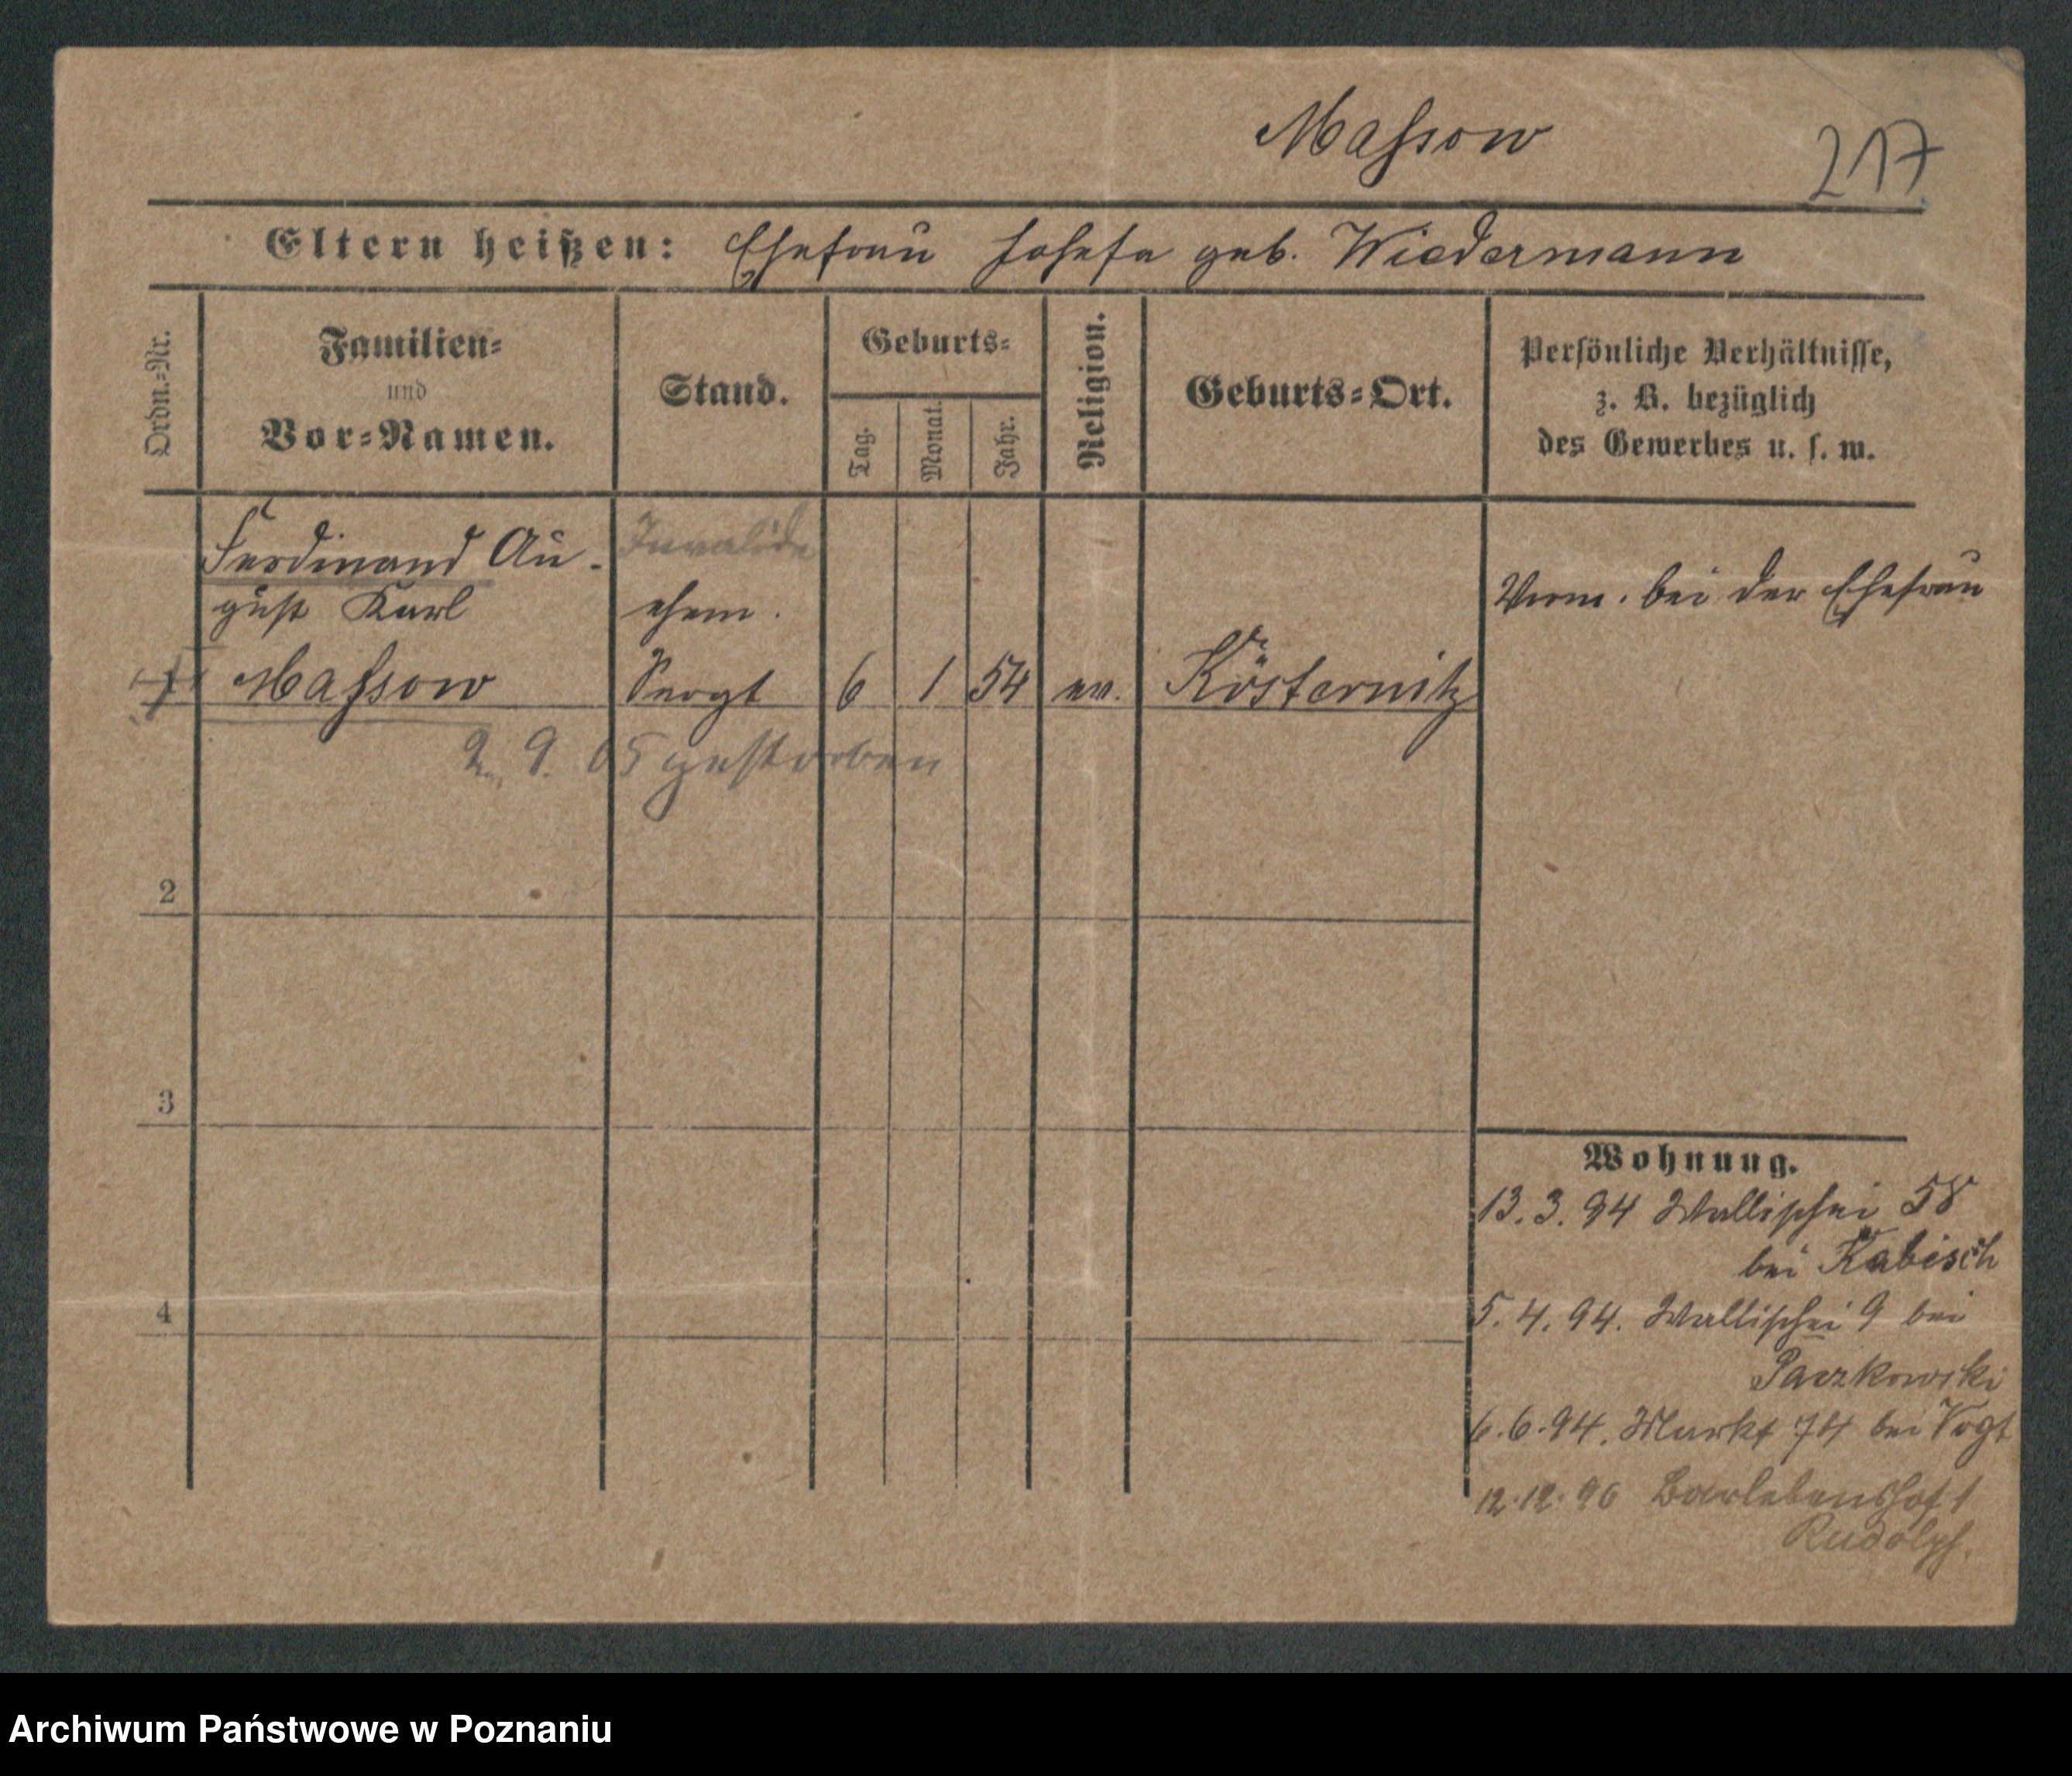 Maſsow
217
Eltern heißen: Ehefrau Josefa geb. Wiedermann
Ordn.=Nr.
Familien=
und
Vor=Namen.
Stand.
Geburts=
Tag.
Monat.
Jahr.
Religion.
Geburts=Ort.
Persönliche Verhältnisse,
z. B. bezüglich
des Gewerbes u. s. w.
Ferdinand Au-
gust Karl
Maſsow
Invalide
ehem.
Sergt
6
1
54
ev.
Kösternitz
bei der Ehefrau
2. 9. 05 gestorben
2
3
4
Wohnung.
13. 3. 94 Wallischei 58
bei Kabisch
5. 4. 94. Wallischei 9 bei
Paczkowski
6. 6. 94. Markt 74 bei Vogt
12. 12. 96 Barlebenshof 1
Rudolph.
Archiwum Państwowe w Poznaniu